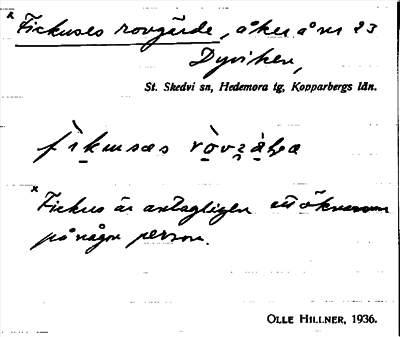 x Fickuses rovgärde, åker å nr 23
Dyviken,
St. Skedvi sn, Hedemora tg, Kopparbergs län.
fikusæs
x Fickus är antagligen ett öknamn
på någon person.
OLLE HILLNER, 1936.